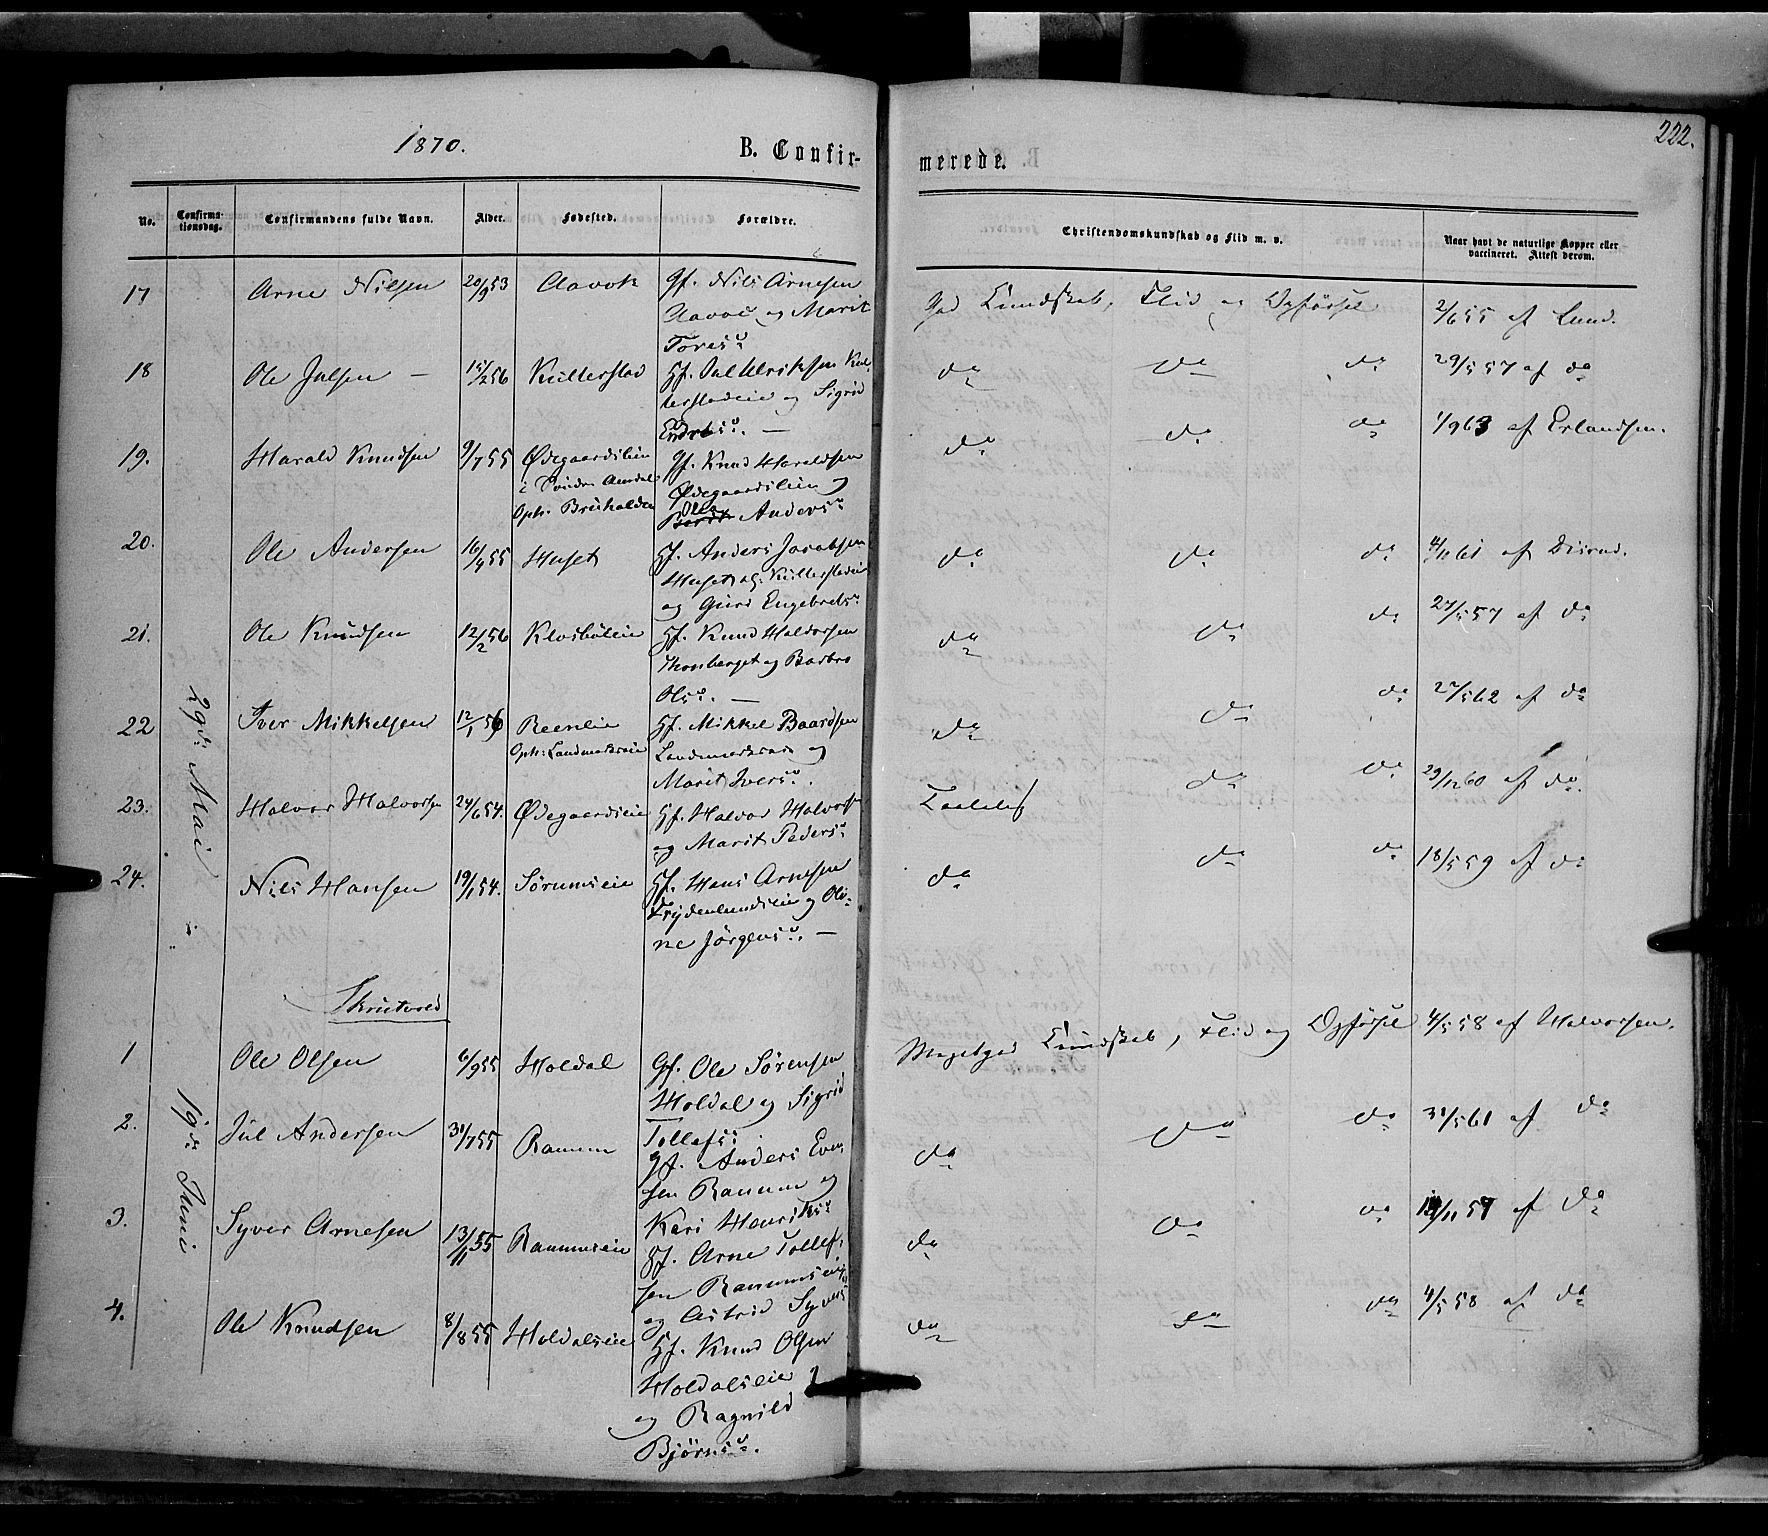 1870.
B. Confir-
merede.
222.
No.
Confirma-
tionsdag.
Confirmandens fulde Navn.
Alder.
Fødested.
Forældre.
Christendomskundskab og Flid m. v.
Naar havt de naturlige Kopper eller
vaccineret. Attest derom.
17 Arne Nilsen 20/9 53 Aavok Gf. Nils Arnesen God Kundskab, Flid og Opførsel 2/6 55 af Lund.
og Marit
Toresd:
18 Ole Julsen — 15/2 56 Kullerstad Hf. Jul Ulriksen Kul- do do do 29/5 57 af do
lerstadeie og Sigrid
Endresd:. —
19. Harald Knudsen 9/7 55 Ødegaardseie Gf. Knud Haraldsen do do do 1/9 63 af Erlandsen.
i Søndre Aurdal Ødegaardseie og
Oph. Bruhalden Anders:
20. Ole Andersen 16/4 55 Huset Hf. Anders Jacobsen do do do 4/11 61 af Disrud.
Huset Kullerstadeie
og Guri Engebretsd:
21. Ole Knudsen 12/2 56 Klosbøleie Hf. Knud Haldorsen do do do 27/5 57 af do
Thonberget og Barbro
Olsd:. —
29de Mai
22 Iver Mikkelsen 12/1 56 Reenleie Hf. Mikkel Baardsen do do do 27/5 62 af do
Oph: Landmarkseie og
Marit Iversd:.
23. Halvor Halvorsen 24/6 54. Ødegaardseie Hf. Halvor Halvorsen Taalelig do do 29/12 60 af do.
og Marit Pedersd:
24. Nils Hansen 19/1 54. Sørumseie Hf. Hans Arnesen do do do 18/5 59 af do
Frydenlundseie og Oli-
ne Jørgensd:. —
Skrutvold
1 Ole Olsen 6/9 55 Holdal Gf. Ole Sørensen Megetgod Kundskab, Flid og Opførsel 4/5 58 af Halvorsen.
Holdal og Sigrid
Tollefsd:
19de Juni
2. Jul Andersen 31/7 55 Ranum Gf. Anders Even- do do do 31/5 61 af do
sen Ranum og
Kari Henriksd:
3. Syver Arnesen 13/11 55 Ranumseie Hf. Arne Tollef- do do do /11 57 af do
sen Ranumseie
og Astrid Syversd:
4. Ole Knudsen 8/8 55 Holdalseie Hf. Knud Olsen do do do 4/5 58 af do
Holdalseie
og Ragnild
Bjørnsd:.